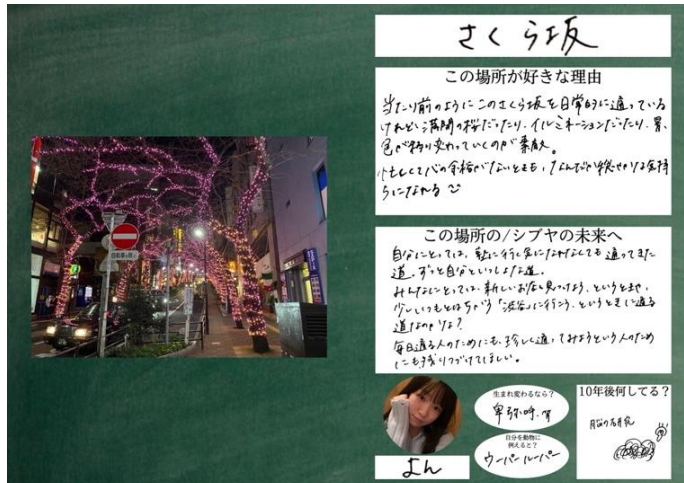 さくら坂
この場所が好きな理由
当たり前のようにこのさくら坂を日常的に通っている
けれど、満開の桜だったり、イルミネーションだったり、景
色が移り変わっていくのが素敵。
忙しくて心の余裕がないときも、なんだか幸せな気持
ちになれる
この場所の/シブヤの未来へ
自分にとっては、
通ってきた
道。ずっと自分といっしょな道。
みんなにとっては、新しいお店を見つけよう、というときや、
少しいつもとはちがう「渋谷」に行こう、というときに通る
道なのかな？
毎日通る人のためにも、珍しく通ってみようという人のため
にも残りつづけてほしい。
自転車を除く
生まれ変わるなら？
卑弥呼
自分を動物に
例えると？
ウーパールーパー
10年後何してる？
脳の研究
よん